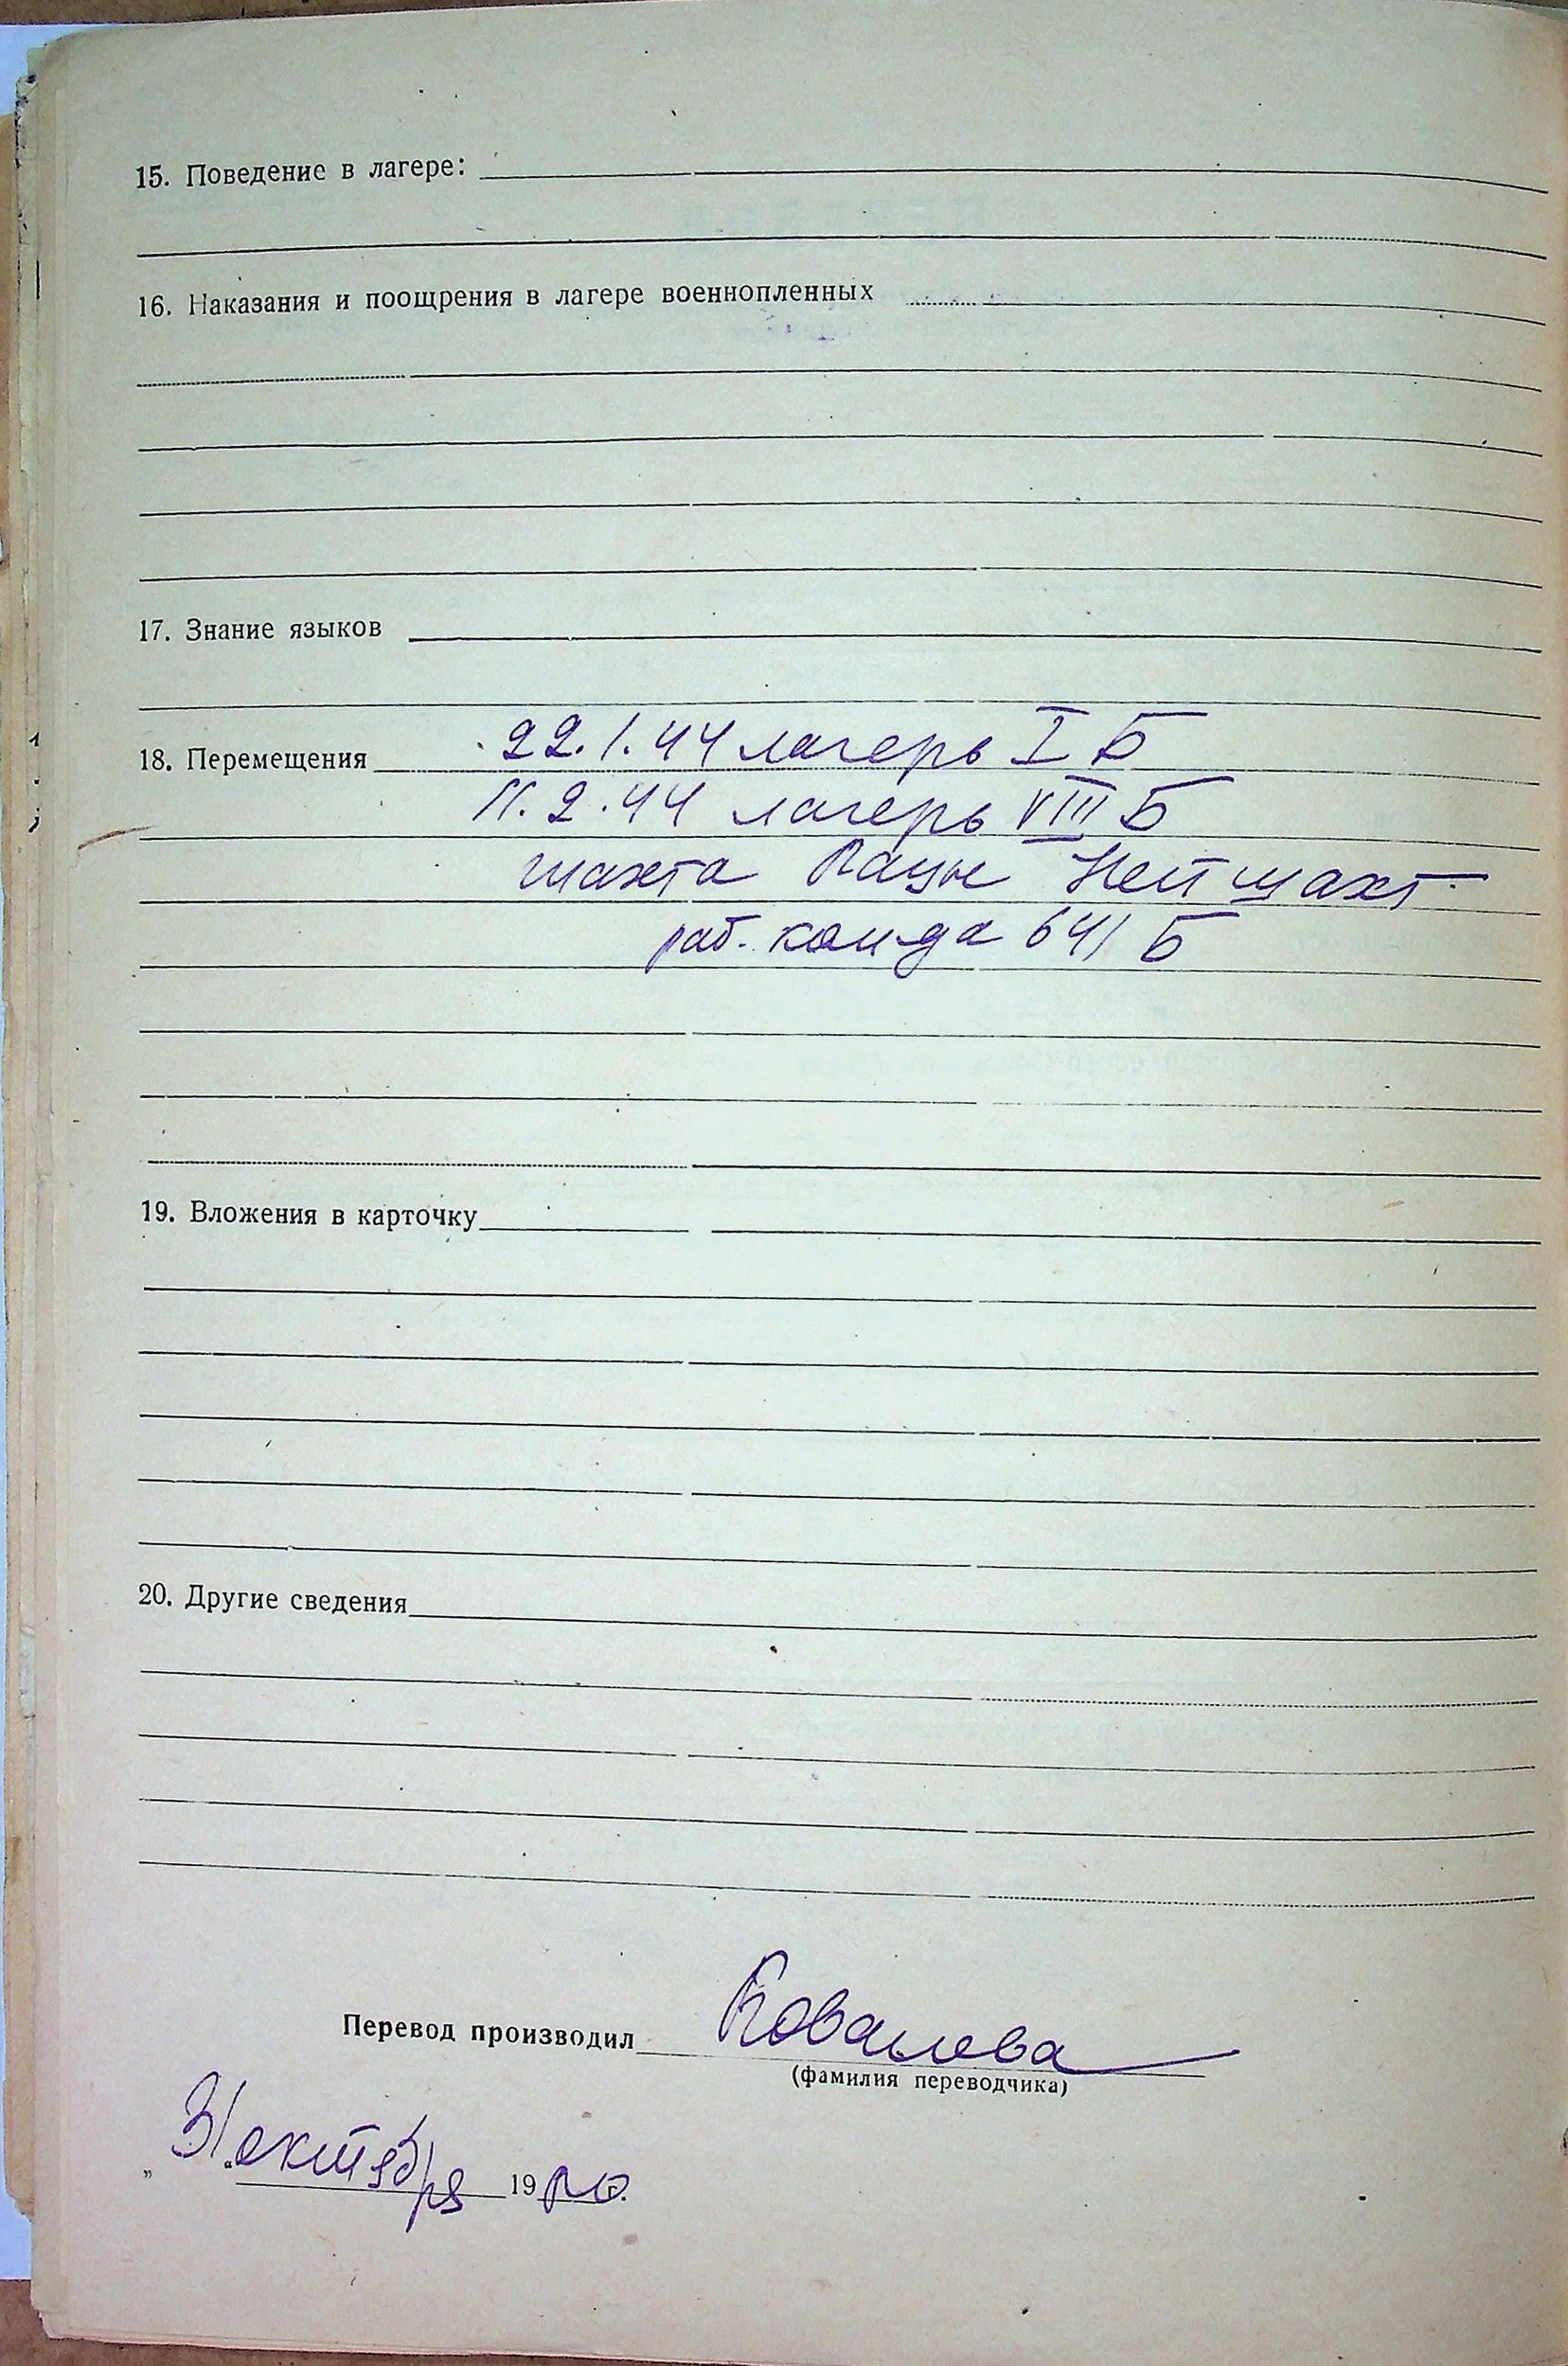 15. Поведение в лагере:
16. Наказания и поощрения в лагере военнопленных
17. Знание языков
18. Перемещения 22.1.44 лагерь I Б
11.2.44 лагерь VIII Б
шахта Нейшахт
раб. кома-да 641 Б
19. Вложения в карточку
20. Другие сведения
Перевод производил Ковалева
(фамилия переводчика)
„31“ октября 19 г.